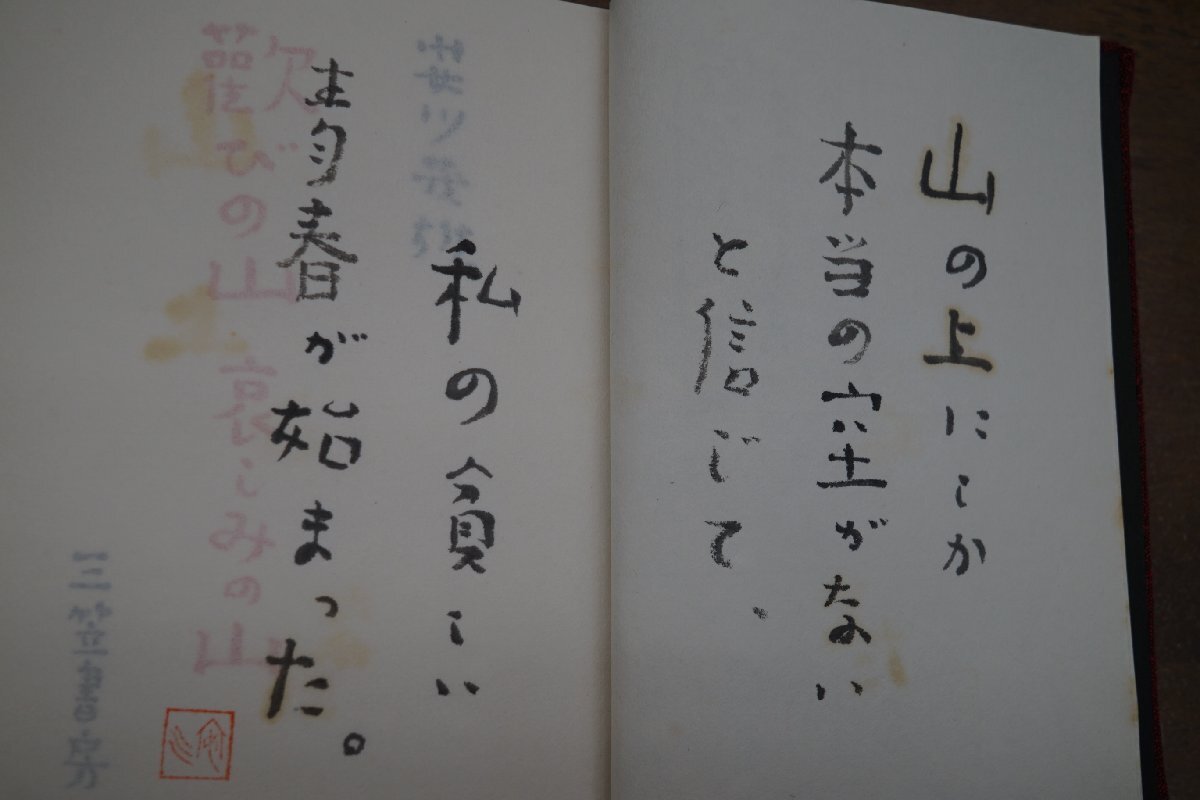 山の上にしか
本当の空がない
と信じて、
私の貧しい
青春が始まった。
歡びの山 哀しみの山
三笠書房